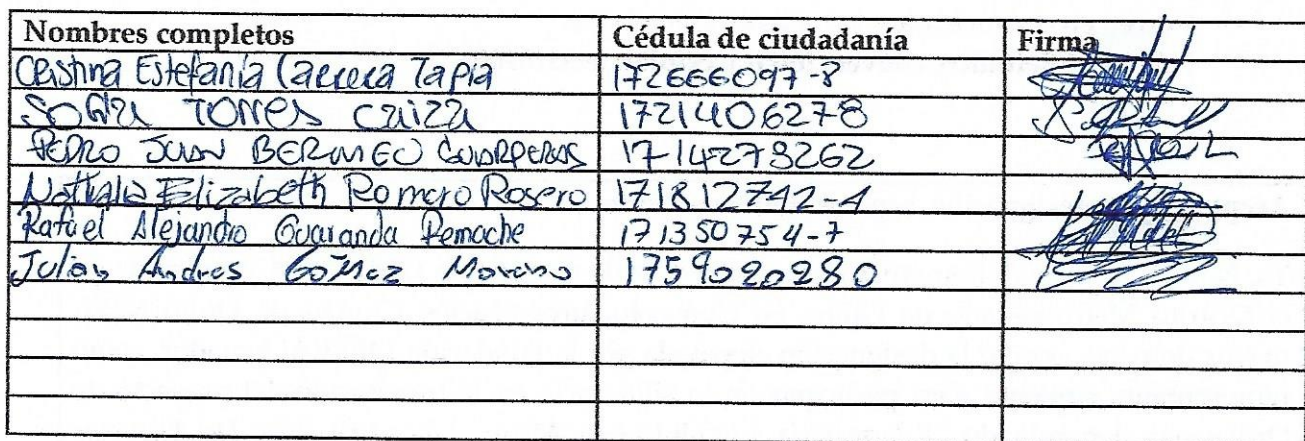 Nombres completos Cédula de ciudadanía Firma
Cristina Estefanía Carrera Tapia 172666097-8
Sofía Torres Caiza 1721406278
PEDRO JUAN BERMEO 1714273262
Nathalia Elizabeth Romero Rosero 171812742-4
Rafael Alejandro Guaranda Pemache 171350754-7
Julian Andres Goméz Moreno 1759020280